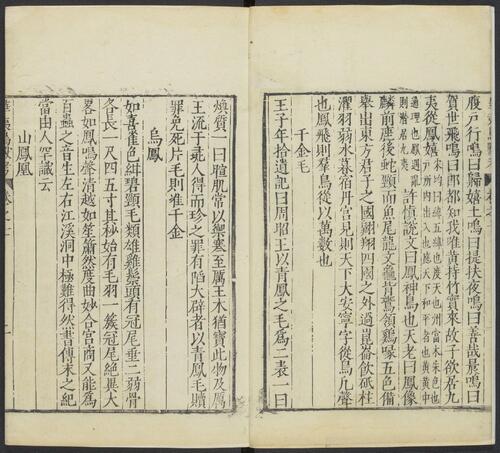 腹戶行鳴曰歸嬉止鳴曰提扶夜鳴曰善哉晨鳴曰
賀世飛鳴曰郎都知我唯黃持竹實來故子欲居九
夷從鳳嬉
許慎說文曰鳳神鳥也天老曰鳳像
麟前鹿後蛇頸而魚尾龍文龜背鷰頷雞喙五色備
舉出東方君子之國翺翔四國之外過崑崙飲砥柱
濯羽弱水暮宿丹宮見則天下大安寧字從鳥凡聲
也鳳飛則羣鳥從以萬數也
千金毛
王子年拾遺記曰周昭王以青鳳之毛爲二裘一曰
煥質一曰暄肌常以禦寒至厲王末猶寶此物及厲
王流于彘人得而珍之罪有陷大辟者以青鳳毛贖
罪免死片毛則准千金
烏鳳
如喜雀色紺碧頸毛類雄雞鬃頭有冠尾垂二弱骨
各長一尺四五寸其杪始有毛羽一簇冠尾絕異大
畧如鳳鳴聲清越如笙簫然度曲妙合宮商又能爲
百蟲之音生左右江溪洞中極難得然書傳未之紀
當由人罕識云
山鳳凰